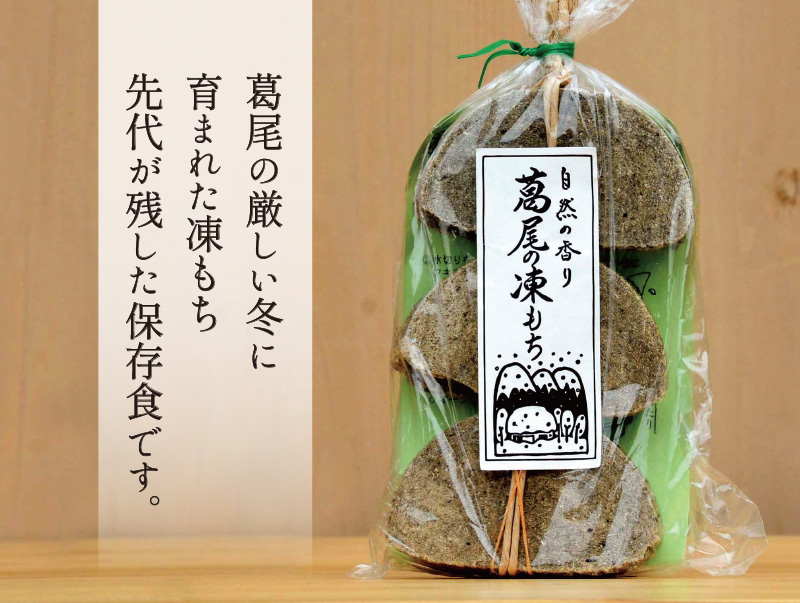 葛尾の厳しい冬に
育まれた凍もち
先代が残した保存食です。
自然の香り
葛尾の凍もち
水切り